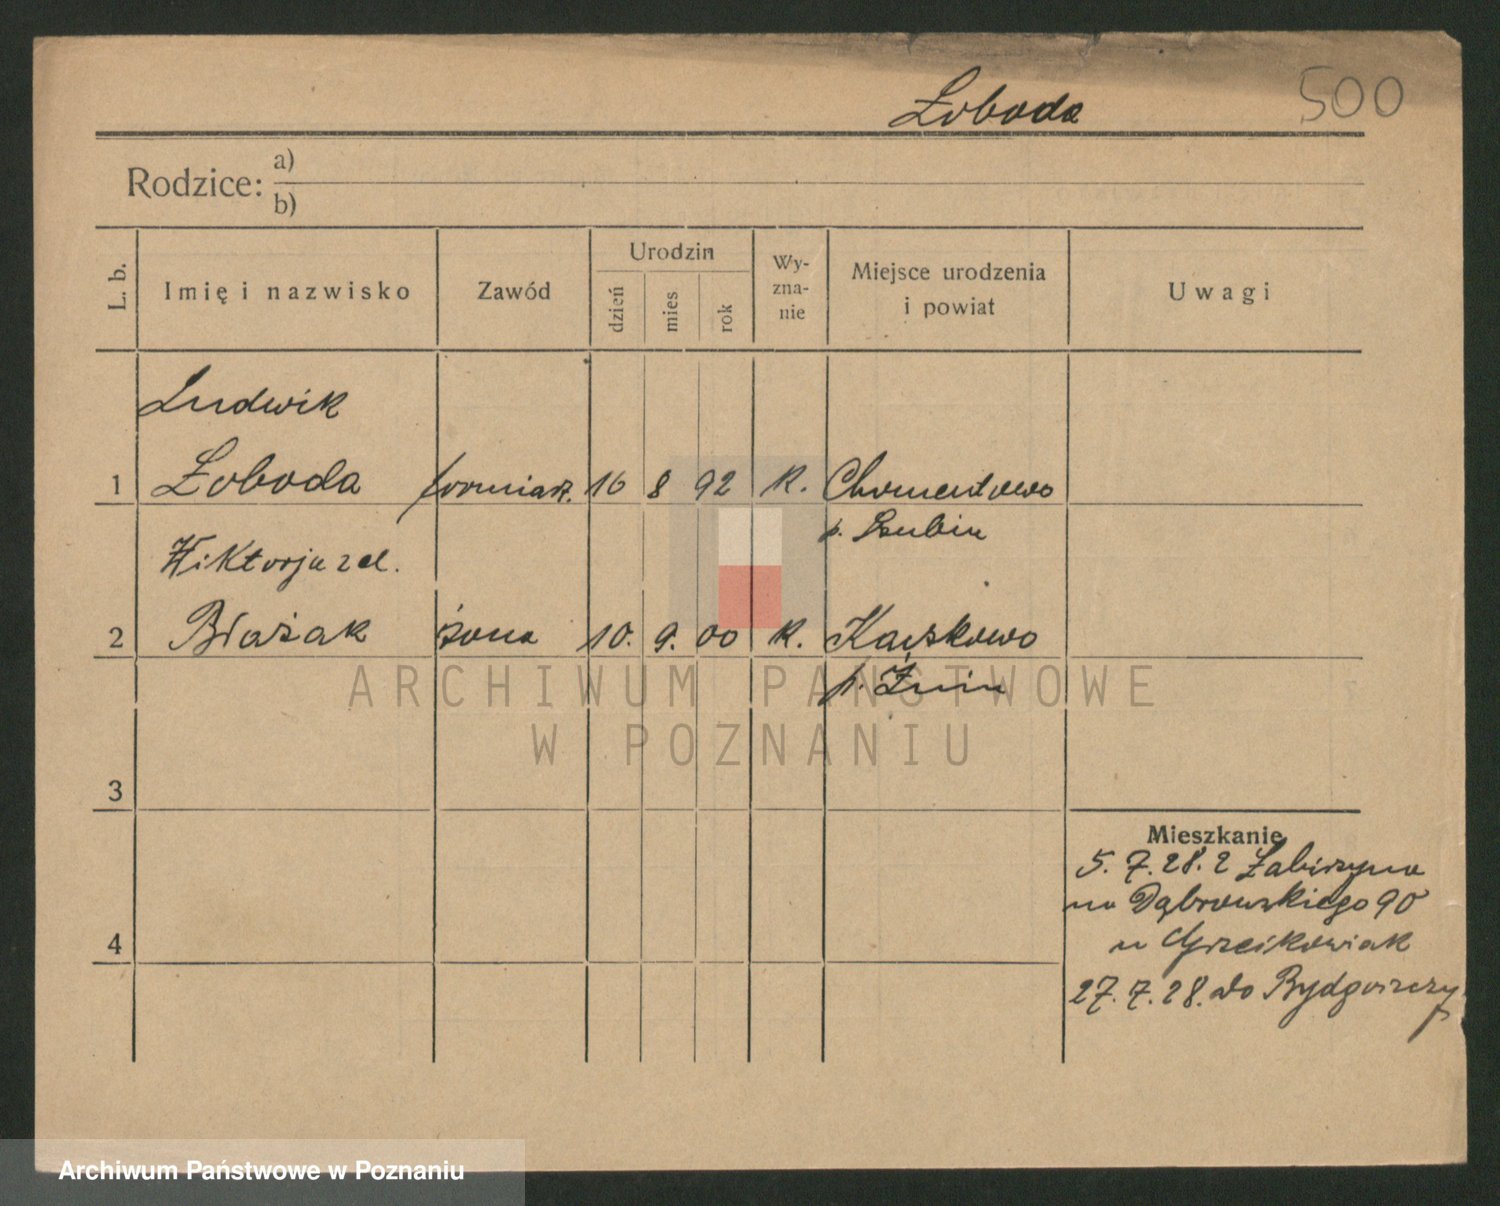 Łoboda 500
Rodzice: a)
b)
L. b.
Imię i nazwisko
Zawód
Urodzin
dzień
mies
rok
Wy-
zna-
nie
Miejsce urodzenia
i powiat
Uwagi
Ludwik
1 Łoboda forniarz. 16 8 92 K. Chomentowo
p. Szubin
Wiktorja zd.
2 Błażak żona 10. 9. 00 K. Kaczkowo
p. Żnin
ARCHIWUM PAŃSTWOWE
W POZNANIU
3
Mieszkanie
5. 7. 28. z Łabiszyna
na Dąbrowskiego 90
4 u Grześkowiak
27. 7. 28. do Bydgoszczy
Archiwum Państwowe w Poznaniu